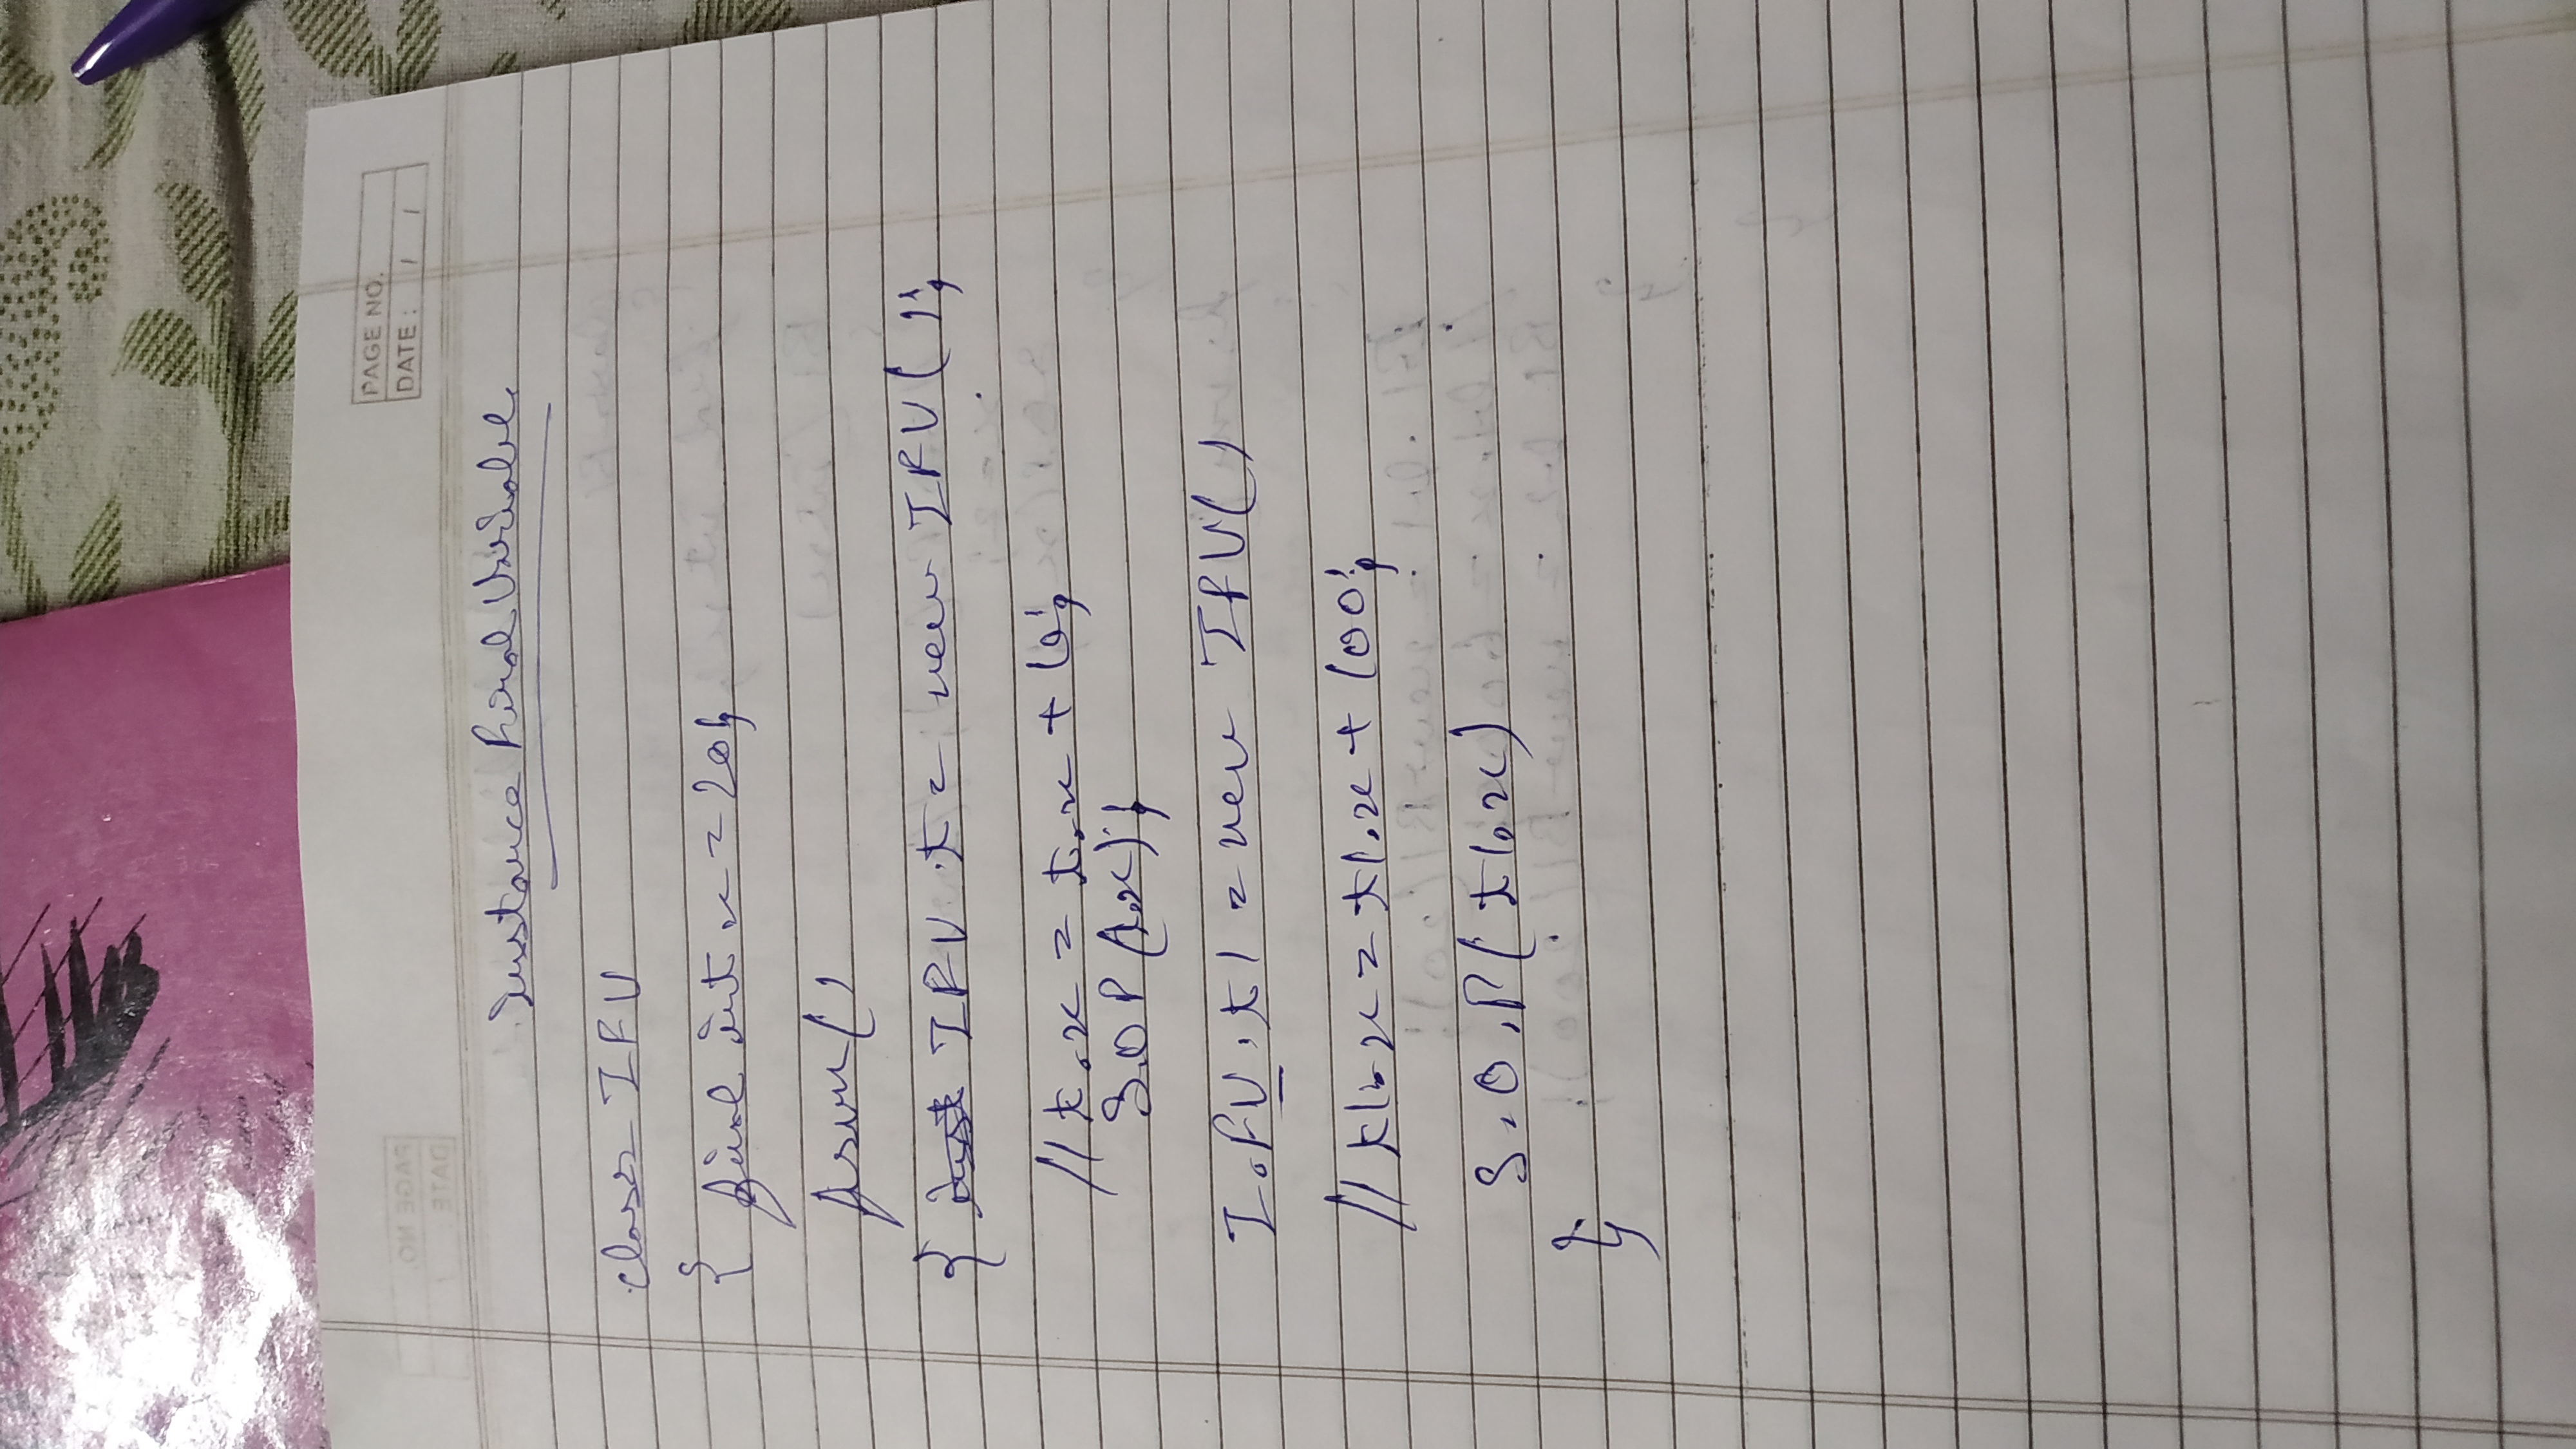 PAGE NO.
DATE : / /
Instance Final Variable
class IFV
{ final int x = 20;
psvm()
{ IFV t = new IFV();
// t.x = t.x + 10;
S.O.P(t.x);
I.FV t1 = new IFV()
// t1.x = t1.x + 100;
S.O.P(t1.x)
}